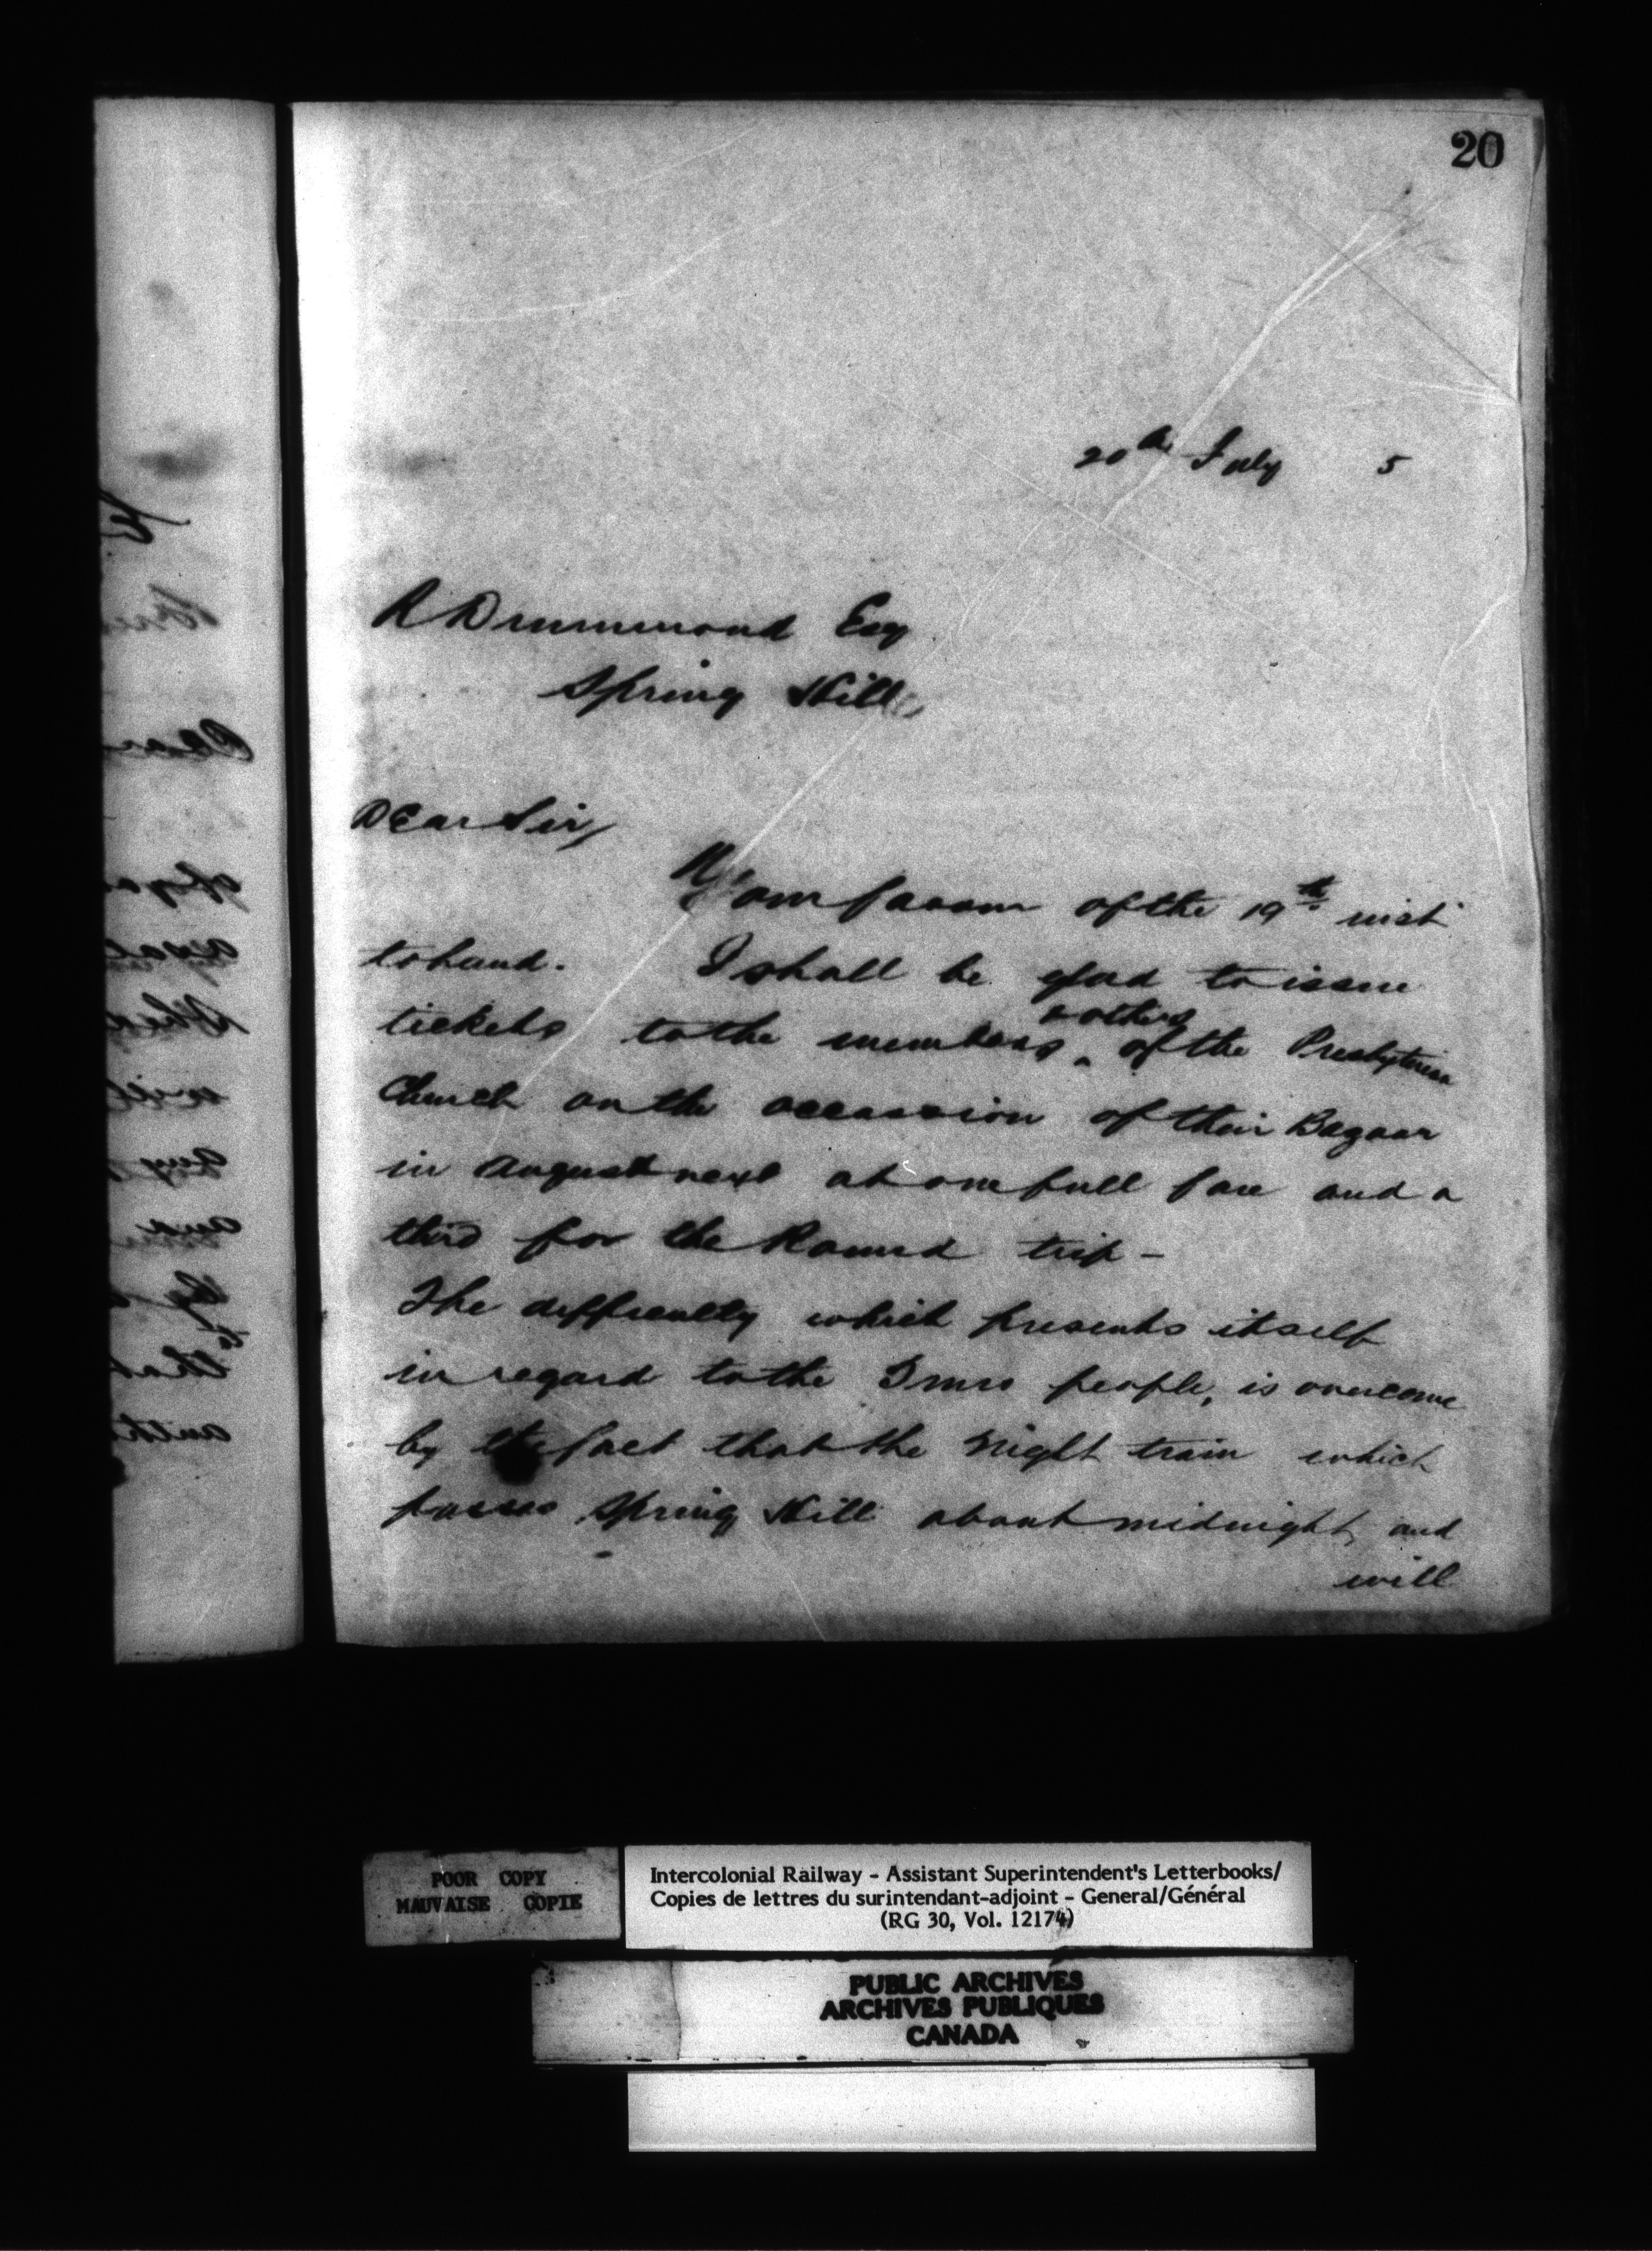 20
20th July 5
R Drummond Esq
Spring Hill
Dear Sir,
Your favour of the 19th inst
to hand. I shall be glad to issue
tickets to the members & others of the Presbyterian
Church on the occassion of their Bazaar
in August next at one full fare and a
third for the Round trip -
The difficulty which presents itself
in regard to the Truro people, is overcome
by the fact that the Night train which
passes Spring Hill about midnight, and
will
POOR COPY
MAUVAISE COPIE
Intercolonial Railway - Assistant Superintendent's Letterbooks/
Copies de lettres du surintendant-adjoint - General/Général
(RG 30, Vol. 12174)
PUBLIC ARCHIVES
ARCHIVES PUBLIQUES
CANADA